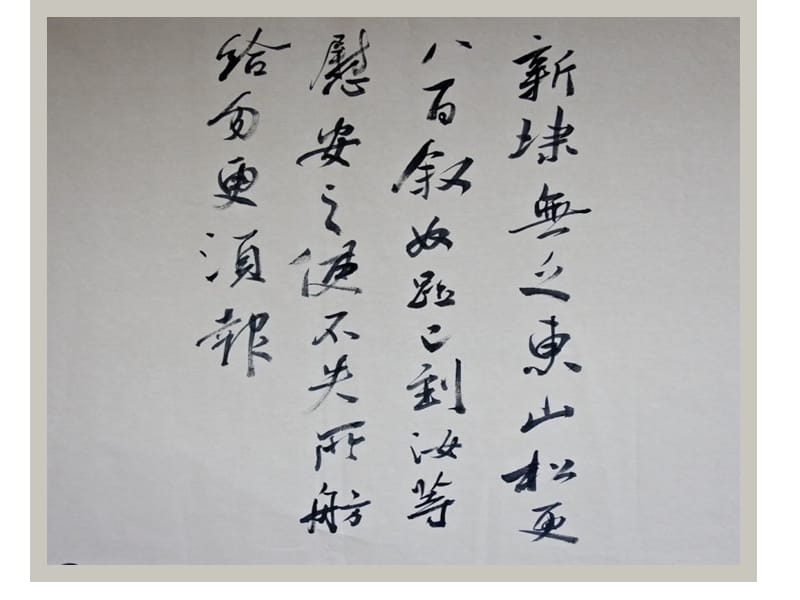 新埭無乏東山松更
八百叙奴已到汝等
慰安之使不失所舫
給勿更須報